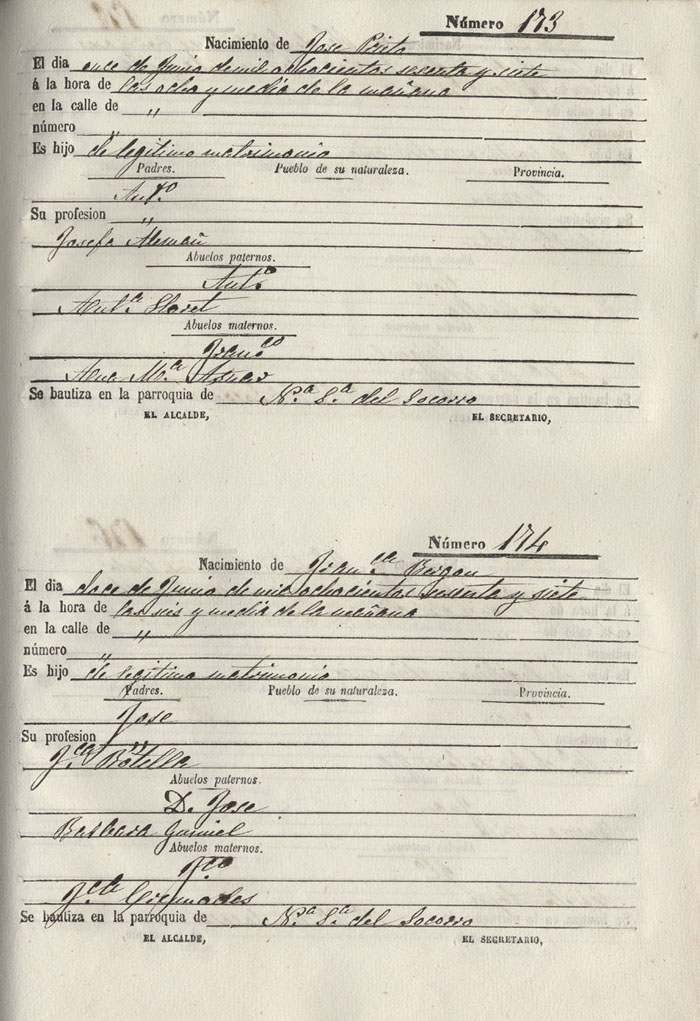 Número 173
Nacimiento de Jose Prieto
El dia once de Junio de mil ochocientos sesenta y siete
á la hora de las ocho y media de la mañana
en la calle de "
número "
Es hijo de legitimo matrimonio
Padres. Pueblo de su naturaleza. Provincia.
Antº
Su profesion "
Josefa Alemañ
Abuelos paternos.
Antº
Antª Lloret
Abuelos maternos.
Franco
Ana Mª Aznar
Se bautiza en la parroquia de Nª Sª del Socorro
EL ALCALDE, EL SECRETARIO,
Número 174
Nacimiento de Franca
El dia doce de Junio de mil ochocientos sesenta y siete
á la hora de las seis y media de la mañana
en la calle de "
número "
Es hijo de legitimo matrimonio
Padres. Pueblo de su naturaleza. Provincia.
Jose
Su profesion "
Fca Botella
Abuelos paternos.
D. Jose
Barbara
Abuelos maternos.
Fco
Fca
Se bautiza en la parroquia de Nª Sª del Socorro
EL ALCALDE, EL SECRETARIO,